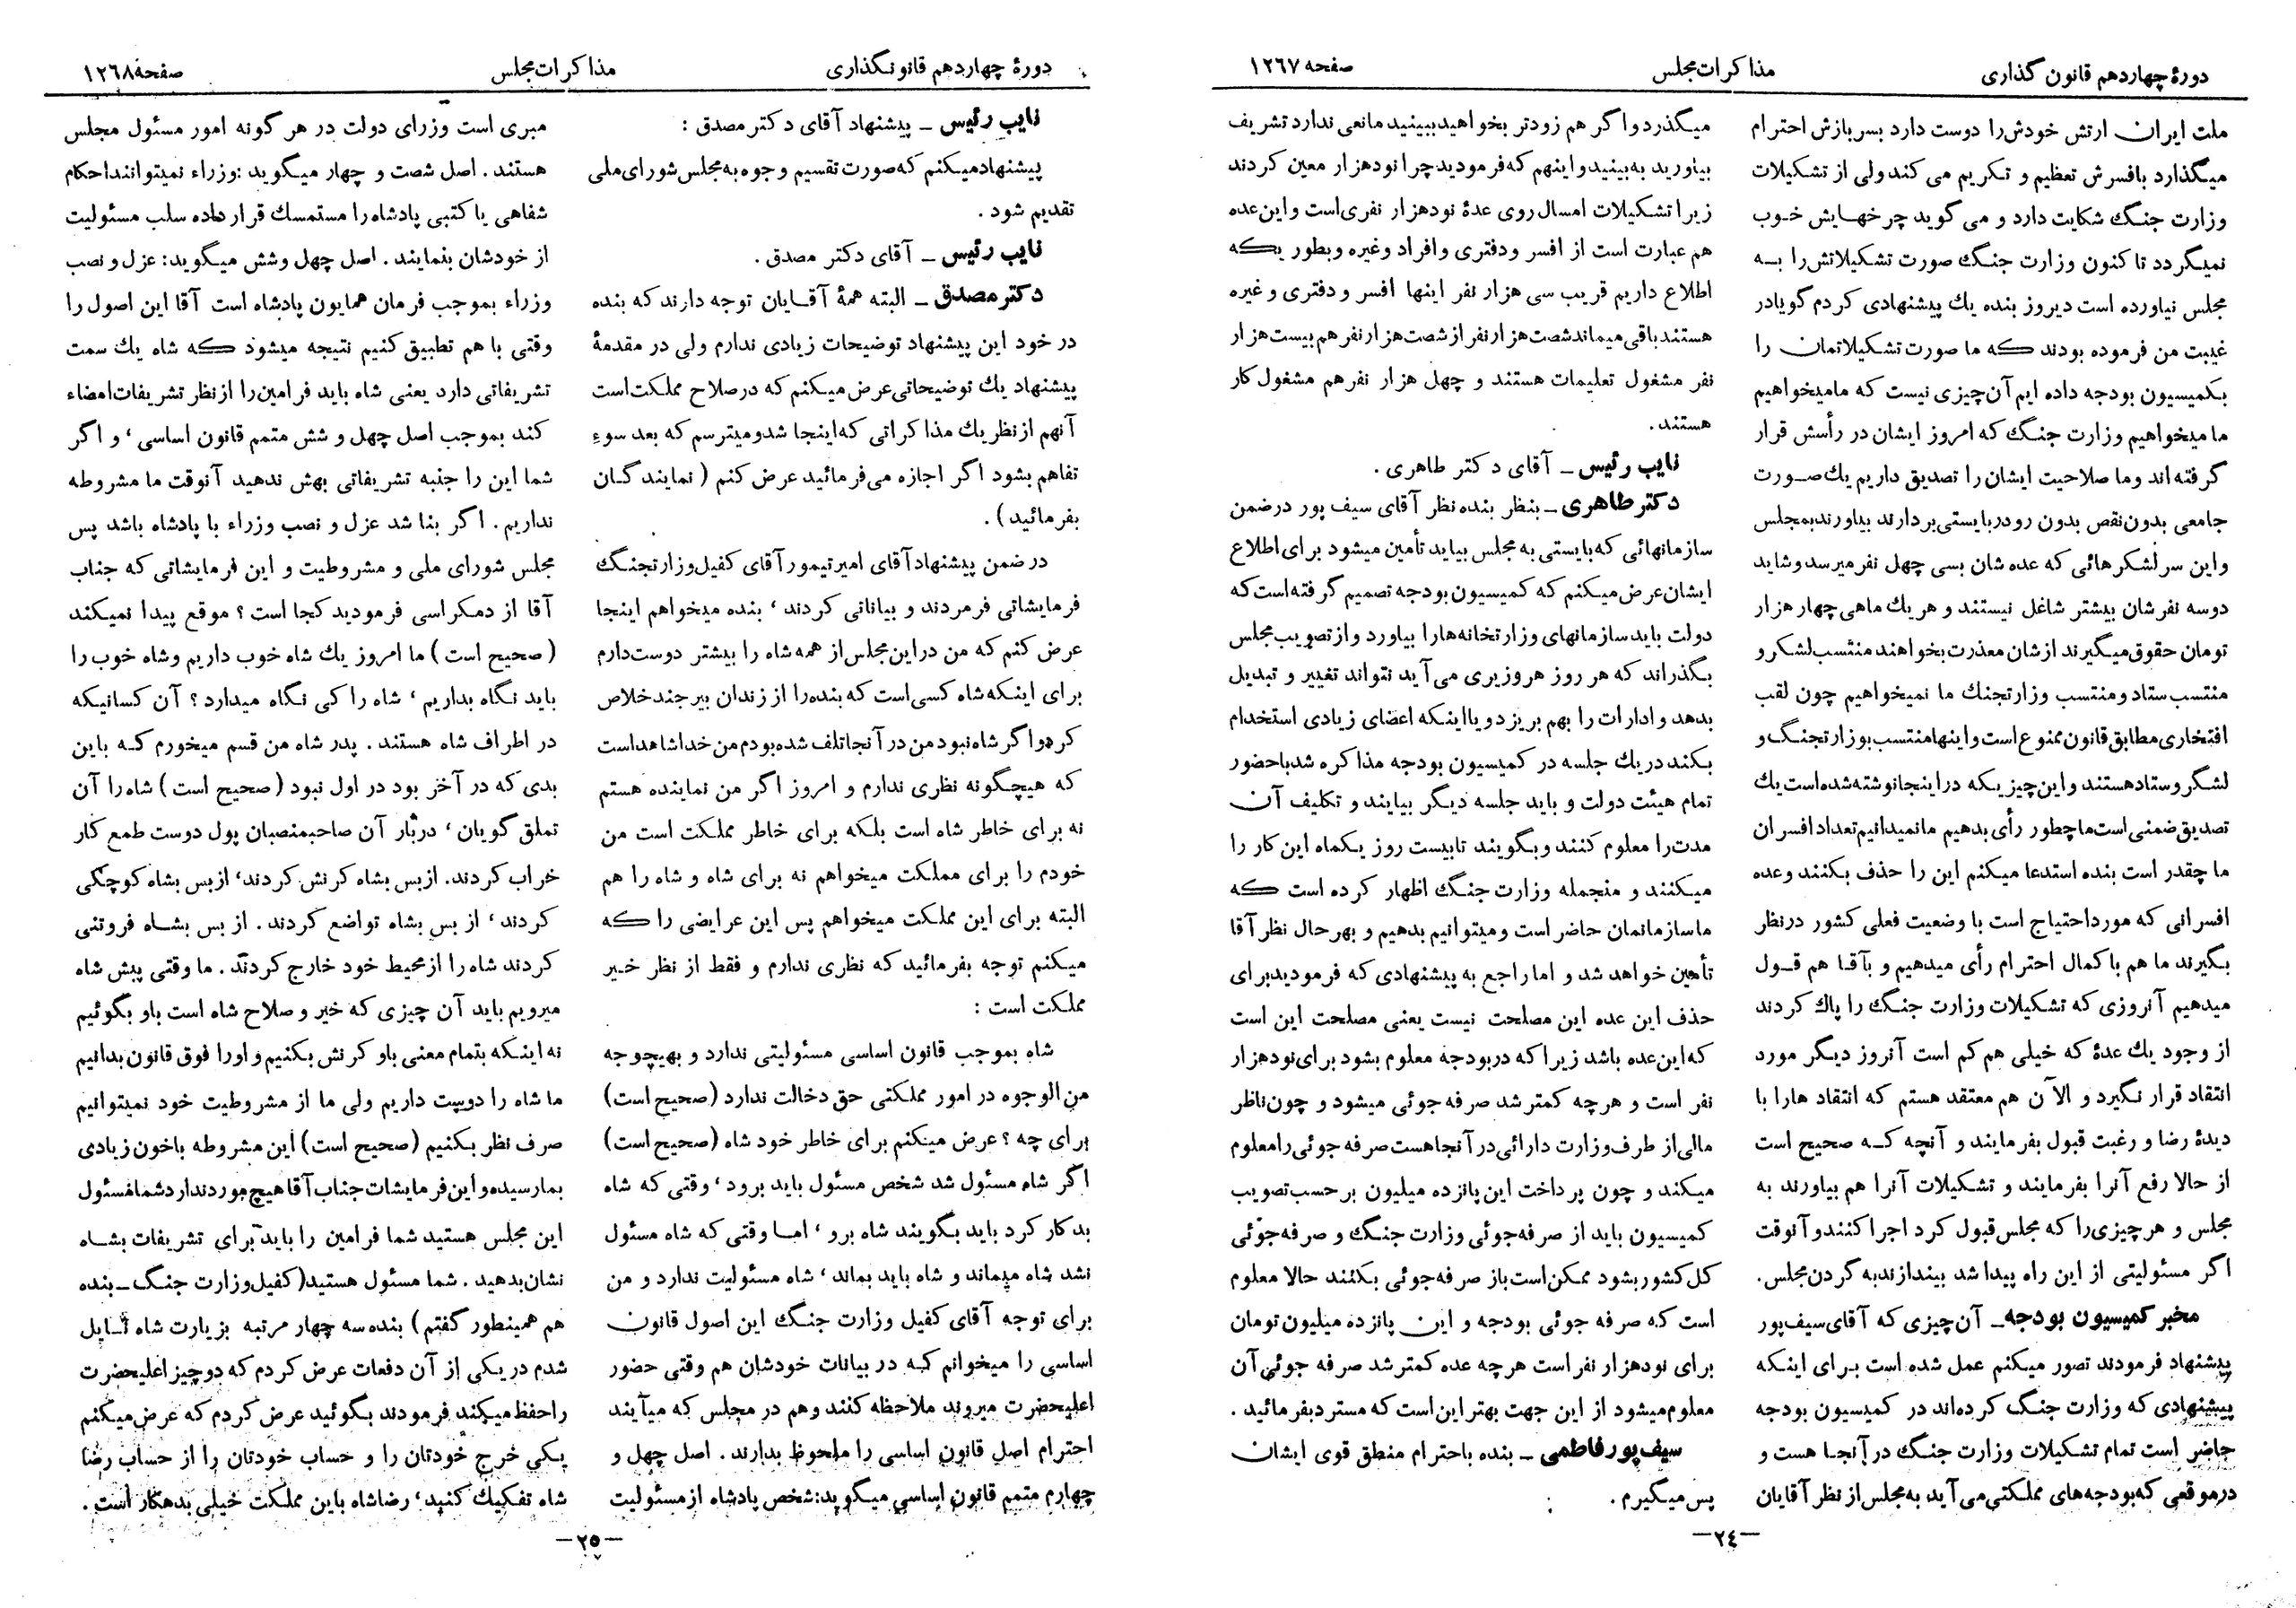 دورهٔ چهاردهم قانون گذاری
مذاکرات مجلس
صفحه ۱۲۶۷
ملت ایران ارتش خودش را دوست دارد بسربازش احترام
میگذارد بافسرش تعظیم و تکریم می کند ولی از تشکیلات
وزارت جنگ شکایت دارد و می گوید چرخهایش خوب
نمیگردد تا کنون وزارت جنگ صورت تشکیلاتش را به
مجلس نیاورده است دیروز بنده یك پیشنهادی کردم گویادر
غیبت من فرموده بودند که ما صورت تشکیلاتمان را
بکمیسیون بودجه داده ایم آن چیزی نیست که مامیخواهیم
ما میخواهیم وزارت جنگ که امروز ایشان در رأسش قرار
گرفته اند وما صلاحیت ایشان را تصدیق داریم یك صورت
جامعی بدون نقص بدون رودربایستی بردارند بیاورند بمجلس
واین سرلشکرهائی که عده شان بسی چهل نفر میرسد و شاید
دوسه نفرشان بیشتر شاغل نیستند و هر یك ماهی چهار هزار
تومان حقوق میگیرند ازشان معذرت بخواهند منتسب لشکر و
منتسب ستاد و منتسب وزارتجنك ما نمیخواهیم چون لقب
افتخاری مطابق قانون ممنوع است و اینها منتسب بوزارتجنگ و
لشگر وستاد هستند واین چیزیکه در اینجا نوشته شده است یك
تصدیق ضمنی است ما چطور رأی بدهیم ما نمیدانیم تعداد افسران
ما چقدر است بنده استدعا میکنم این را حذف بکنند وعده
افسرانی که مورد احتیاج است با وضعیت فعلی کشور در نظر
بگیرند ما هم با کمال احترام رأی میدهیم و بآقا هم قول
میدهیم آنروزی که تشکیلات وزارت جنگ را پاك کردند
از وجود یك عدهٔ که خیلی هم کم است آنروز دیگر مورد
انتقاد قرار نگیرد و الآن هم معتقد هستم که انتقاد هارا با
دیدهٔ رضا و رغبت قبول بفرمایند و آنچه که صحیح است
از حالا رفع آنرا بفرمایند و تشکیلات آنرا هم بیاورند به
مجلس و هر چیزی را که مجلس قبول کرد اجرا کنند و آنوقت
اگر مسئولیتی از این راه پیدا شد بیندازند به گردن مجلس.
مخبر کمیسیون بودجه ـ آن چیزی که آقای سیف پور
پیشنهاد فرمودند تصور میکنم عمل شده است برای اینکه
پیشنهادی که وزارت جنگ کرده اند در کمیسیون بودجه
حاضر است تمام تشکیلات وزارت جنگ در آنجا هست و
درموقعی که بودجه های مملکتی می آید به مجلس از نظر آقایان
میگذرد و اگر هم زودتر بخواهید ببینید مانعی ندارد تشریف
بیاورید به بینید و اینهم که فرمودید چرا نودهزار معین کردند
زیرا تشکیلات امسال روی عدهٔ نودهزار نفری است و این عده
هم عبارت است از افسر و دفتری وافراد وغیره وبطوریکه
اطلاع داریم قریب سی هزار نفر اینها افسر و دفتری و غیره
هستند باقی میماند شصت هزار نفر از شصت هزار نفر هم بیست هزار
نفر مشغول تعلیمات هستند و چهل هزار نفر هم مشغول کار
هستند.
نایب رئیس ـ آقای دکتر طاهری .
دکتر طاهری ـ بنظر بنده نظر آقای سیف پور در ضمن
سازمانهائی که بایستی به مجلس بیاید تأمین میشود برای اطلاع
ایشان عرض میکنم که کمیسیون بودجه تصمیم گرفته است که
دولت باید سازمانهای وزارتخانه هارا بیاورد و از تصویب مجلس
بگذراند که هر روز هر وزیری می آید نتواند تغییر و تبدیل
بدهد و ادارات را بهم بریزد و یا اینکه اعضای زیادی استخدام
بکند در یك جلسه در کمیسیون بودجه مذاکره شد با حضور
تمام هیئت دولت و باید جلسه دیگر بیایند و تکلیف آن
مدت را معلوم کنند و بگویند تا بیست روز یکماه این کار را
میکنند و منجمله وزارت جنگ اظهار کرده است که
ما سازمانمان حاضر است و میتوانیم بدهیم و بهر حال نظر آقا
تأمین خواهد شد و اما راجع به پیشنهادی که فرمودید برای
حذف این عده این مصلحت نیست یعنی مصلحت این است
که این عده باشد زیرا که در بودجه معلوم بشود برای نود هزار
نفر است و هر چه کمتر شد صرفه جوئی میشود و چون ناظر
مالی از طرف وزارت دارائی در آنجا هست صرفه جوئی را معلوم
میکند و چون پرداخت این پانزده میلیون بر حسب تصویب
کمیسیون باید از صرفه جوئی وزارت جنگ و صرفه جوئی
کل کشور بشود ممکن است باز صرفه جوئی بکنند حالا معلوم
است که صرفه جوئی بودجه و این پانزده میلیون تومان
برای نود هزار نفر است هر چه عده کمتر شد صرفه جوئی آن
معلوم میشود از این جهت بهتر این است که مسترد بفرمائید .
سیف پور فاطمی ـ بنده با احترام منطق قوی ایشان
پس میگیرم .
ـ۲٤ـ
دورهٔ چهاردهم قانونگذاری
مذاکرات مجلس
صفحهٔ ۱۲۶۸
نایب رئیس ـ پیشنهاد آقای دکتر مصدق :
پیشنهاد میکنم که صورت تقسیم وجوه به مجلس شورای ملی
تقدیم شود .
نایب رئیس ـ آقای دکتر مصدق .
دکتر مصدق ـ البته همهٔ آقایان توجه دارند که بنده
در خود این پیشنهاد توضیحات زیادی ندارم ولی در مقدمهٔ
پیشنهاد یك توضیحاتی عرض میکنم که در صلاح مملکت است
آنهم از نظر یك مذاکراتی که اینجا شد و میترسم که بعد سوء
تفاهم بشود اگر اجازه می فرمائید عرض کنم (نمایندگان
بفرمائید) .
در ضمن پیشنهاد آقای امیرتیمور آقای کفیل وزارتجنگ
فرمایشاتی فرمردند و بیاناتی کردند ، بنده میخواهم اینجا
عرض کنم که من در این مجلس از همه شاه را بیشتر دوست دارم
برای اینکه شاه کسی است که بنده را از زندان بیرجند خلاص
کرد و اگر شاه نبود من در آنجا تلف شده بودم من خدا شاهد است
که هیچگونه نظری ندارم و امروز اگر من نماینده هستم
نه برای خاطر شاه است بلکه برای خاطر مملکت است من
خودم را برای مملکت میخواهم نه برای شاه و شاه را هم
البته برای این مملکت میخواهم پس این عرایضی را که
میکنم توجه بفرمائید که نظری ندارم و فقط از نظر خیر
مملکت است :
شاه بموجب قانون اساسی مسئولیتی ندارد و بهیچوجه
من الوجوه در امور مملکتی حق دخالت ندارد (صحیح است)
برای چه ؟ عرض میکنم برای خاطر خود شاه (صحیح است)
اگر شاه مسئول شد شخص مسئول باید برود ، وقتی که شاه
بد کار کرد باید بگویند شاه برو ، اما وقتی که شاه مسئول
نشد شاه میماند و شاه باید بماند ، شاه مسئولیت ندارد و من
برای توجه آقای کفیل وزارت جنگ این اصول قانون
اساسی را میخوانم که در بیانات خودشان هم وقتی حضور
اعلیحضرت میروند ملاحظه کنند وهم در مجلس که میآیند
احترام اصل قانون اساسی را ملحوظ بدارند . اصل چهل و
چهارم متمم قانون اساسی میگوید: شخص پادشاه از مسئولیت
مبری است وزرای دولت در هر گونه امور مسئول مجلس
هستند . اصل شصت و چهار میگوید : وزراء نمیتوانند احکام
شفاهی یا کتبی پادشاه را مستمسك قرار داده سلب مسئولیت
از خودشان بنمایند . اصل چهل وشش میگوید: عزل و نصب
وزراء بموجب فرمان همایون پادشاه است آقا این اصول را
وقتی با هم تطبیق کنیم نتیجه میشود که شاه یك سمت
تشریفاتی دارد یعنی شاه باید فرامین را از نظر تشریفات امضاء
کند بموجب اصل چهل و شش متمم قانون اساسی ، و اگر
شما این را جنبه تشریفاتی بهش ندهید آنوقت ما مشروطه
نداریم. اگر بنا شد عزل و نصب وزراء با پادشاه باشد پس
مجلس شورای ملی و مشروطیت و این فرمایشاتی که جناب
آقا از دمکراسی فرمودید کجا است ؟ موقع پیدا نمیکند
(صحیح است) ما امروز یك شاه خوب داریم وشاه خوب را
باید نگاه بداریم ، شاه را کی نگاه میدارد ؟ آن کسانیکه
در اطراف شاه هستند . پدر شاه من قسم میخورم که باین
بدی که در آخر بود در اول نبود (صحیح است) شاه را آن
تملق گویان ، دربار آن صاحبمنصبان پول دوست طمع کار
خراب کردند. از بس بشاه کرنش کردند، از بس بشاه کوچکی
کردند ، از بس بشاه تواضع کردند . از بس بشاه فروتنی
کردند شاه را از محیط خود خارج کردند . ما وقتی پیش شاه
میرویم باید آن چیزی که خیر و صلاح شاه است باو بگوئیم
نه اینکه بتمام معنی باو کرنش بکنیم و اورا فوق قانون بدانیم
ما شاه را دوست داریم ولی ما از مشروطیت خود نمیتوانیم
صرف نظر بکنیم (صحیح است) این مشروطه با خون زیادی
بما رسیده و این فرمایشات جناب آقا هیچ مورد ندارد شما مسئول
این مجلس هستید شما فرامین را باید برای تشریفات بشاه
نشان بدهید . شما مسئول هستید (کفیل وزارت جنگ ـ بنده
هم همینطور گفتم) بنده سه چهار مرتبه بزیارت شاه نایل
شدم در یکی از آن دفعات عرض کردم که دو چیز اعلیحضرت
را حفظ میکند فرمودند بگوئید عرض کردم که عرض میکنم
یکی خرج خودتان را و حساب خودتان را از حساب رضا
شاه تفکیك کنید ، رضا شاه باین مملکت خیلی بدهکار است .
ـ۲۵ـ